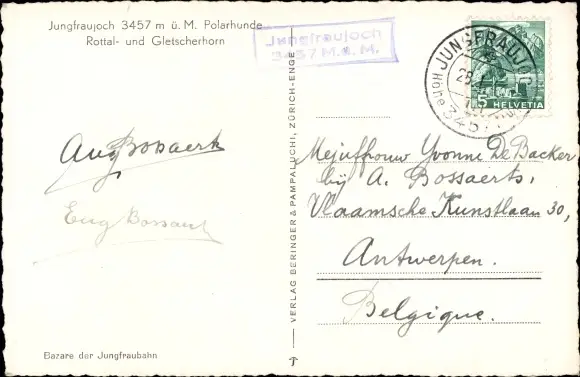 Jungfraujoch 3457 m ü. M. Polarhunde
Rottal- und Gletscherhorn
Jungfraujoch
3457 M.ü.M.
JUNGFRAUJOCH
HÖHE 3457
5 HELVETIA
Aug Bossaerts
Eug Bossaerts
Mejuffrouw Yvonne De Backer
bij A. Bossaerts,
Vlaamsche Kunstlaan 30,
Antwerpen.
Belgique.
VERLAG BERINGER & PAMPALUCHI, ZÜRICH-ENGE
Bazare der Jungfraubahn